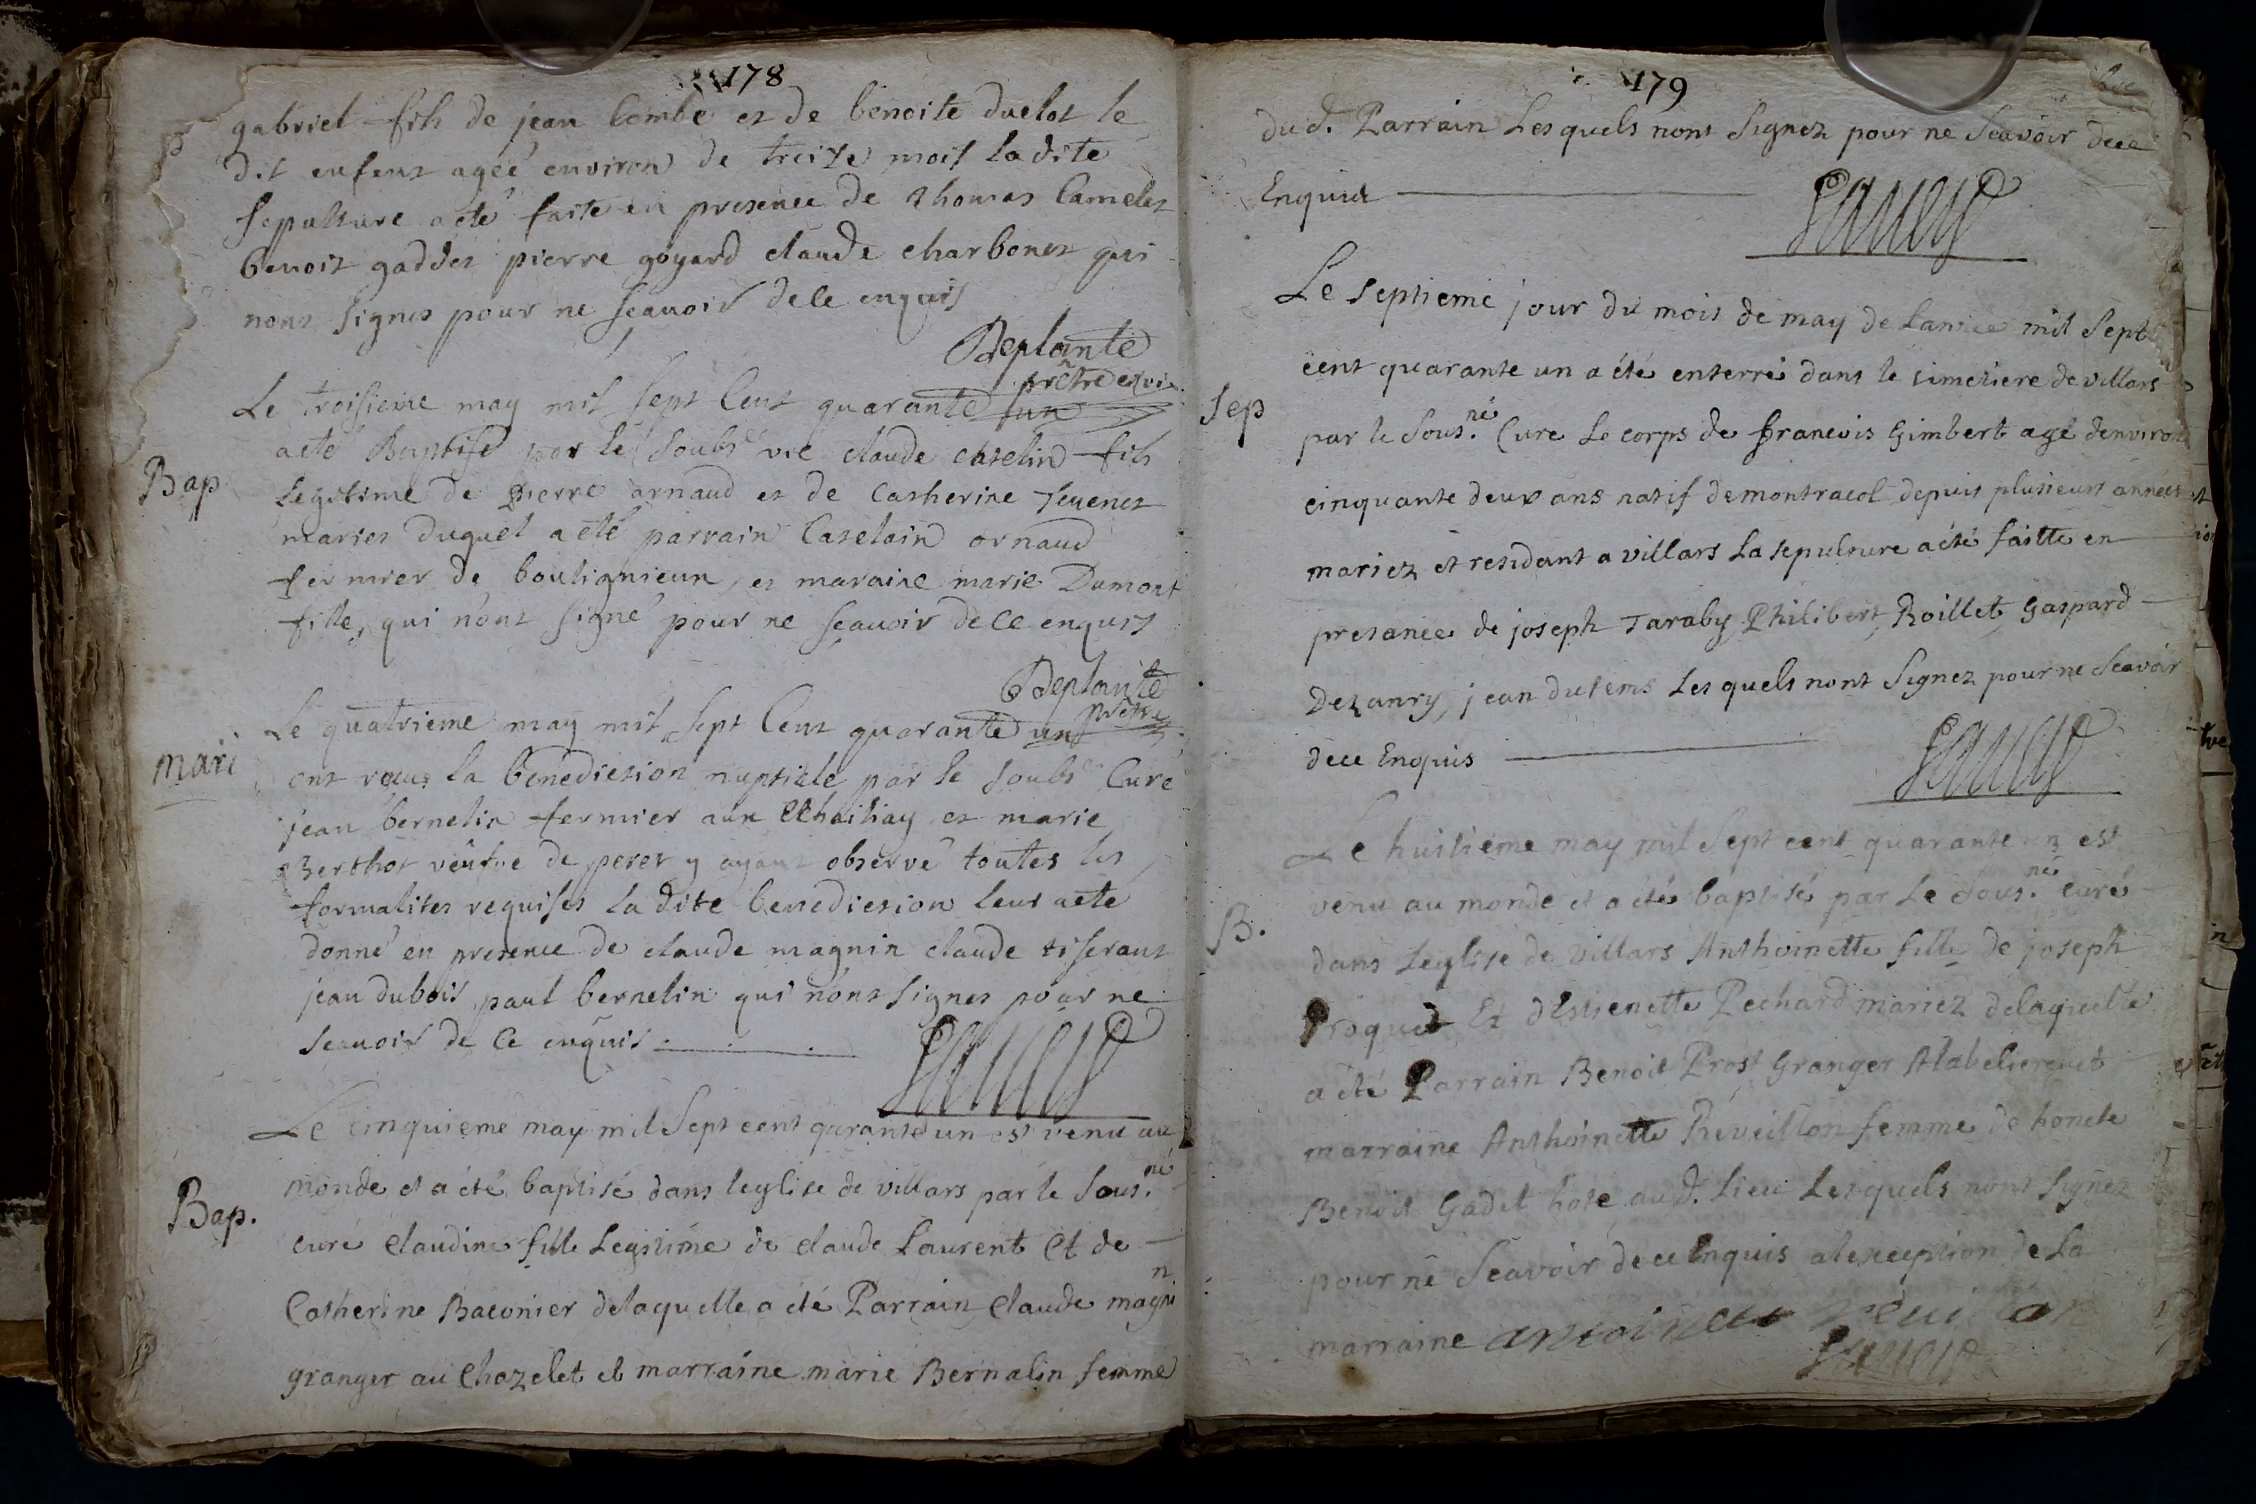 178
gabriel fils de jean Combe et de benoite duclot le
dit enfent agéé environ de treize mois la dite
sepulture a eté faite en presence de thomas Camelet
benoit gaddet pierre goyard claude charbonet qui
nont signes pour ne sçauoir de ce enquis
Deplante
prêtre et vic
Le troisieme may mil sept Cent quarante un
a eté Baptisé par le soubs vic claude caselin fils
Legitime de pierre arnaud et de Catherine Teuenet
maries duquel a eté parrain Caselain arnaud
fermier de boulignieun et maraine marie Dumont
fille, qui n'ont signé pour ne sçauoir de ce enquis
Deplante
prêtre
Bap
Le quatrieme may mil sept Cent quarante un
ont reçus la benediction nuptiale par le soubs Curé
mari
jean bernelin fermier aux Echaihay et marie
Berthot veufve de perer y ayant observé toutes les
formalites requises la dite benediction leur a eté
donné en presence de claude magnin claude tiserant
jean dubois paul bernelin qui n'ont signes pour ne
scauoir de Ce enquis
Le cinquieme may mil Sept cent qurante un est venu au
monde et a été baptisé dans leglise de villars par le Sous.né
Bap.
curé Claudine fille Legitime de Claude Laurent Et de
Catherine Baconier de laquelle a été Parrain Claude magnin
granger au Chazelet et marraine marie Bernalin femme
179
du d. Parrain Lesquels nont Signez pour ne Scavoir dece
Enquis
Le septieme jour du mois de may de Lannee mil Sept
cent quarante un a été enterré dans le simetiere de villars
Sep
par le Sous.né Cure Le corps de francois Gimbert agé denviron
cinquante deux ans natif de montracol depuis plusieurs années
mariez et residant a villars La sepulture a été faitte en
presance de joseph Taraby Philibert Roillet Gaspard
Dezanry, jean dutems Lesquels nont Signez pour ne Scavoir
dece Enquis
Le huitieme may mil Sept cent quarante un est
venu au monde et a été baptisé par Le Sous.né curé
B.
dans Leglise de villars Anthoinette fille de joseph
Proquet Et d'Estienette Pechard mariez de laquelle
a été Parrain Benoit Prost Granger
marraine Anthoinette Reveillon femme de honete
Benoit Gadet hote au d. Lieu Lesquels nont Signez
pour ne Scavoir dece Enquis a lexception de La
marraine antoinete reueillon